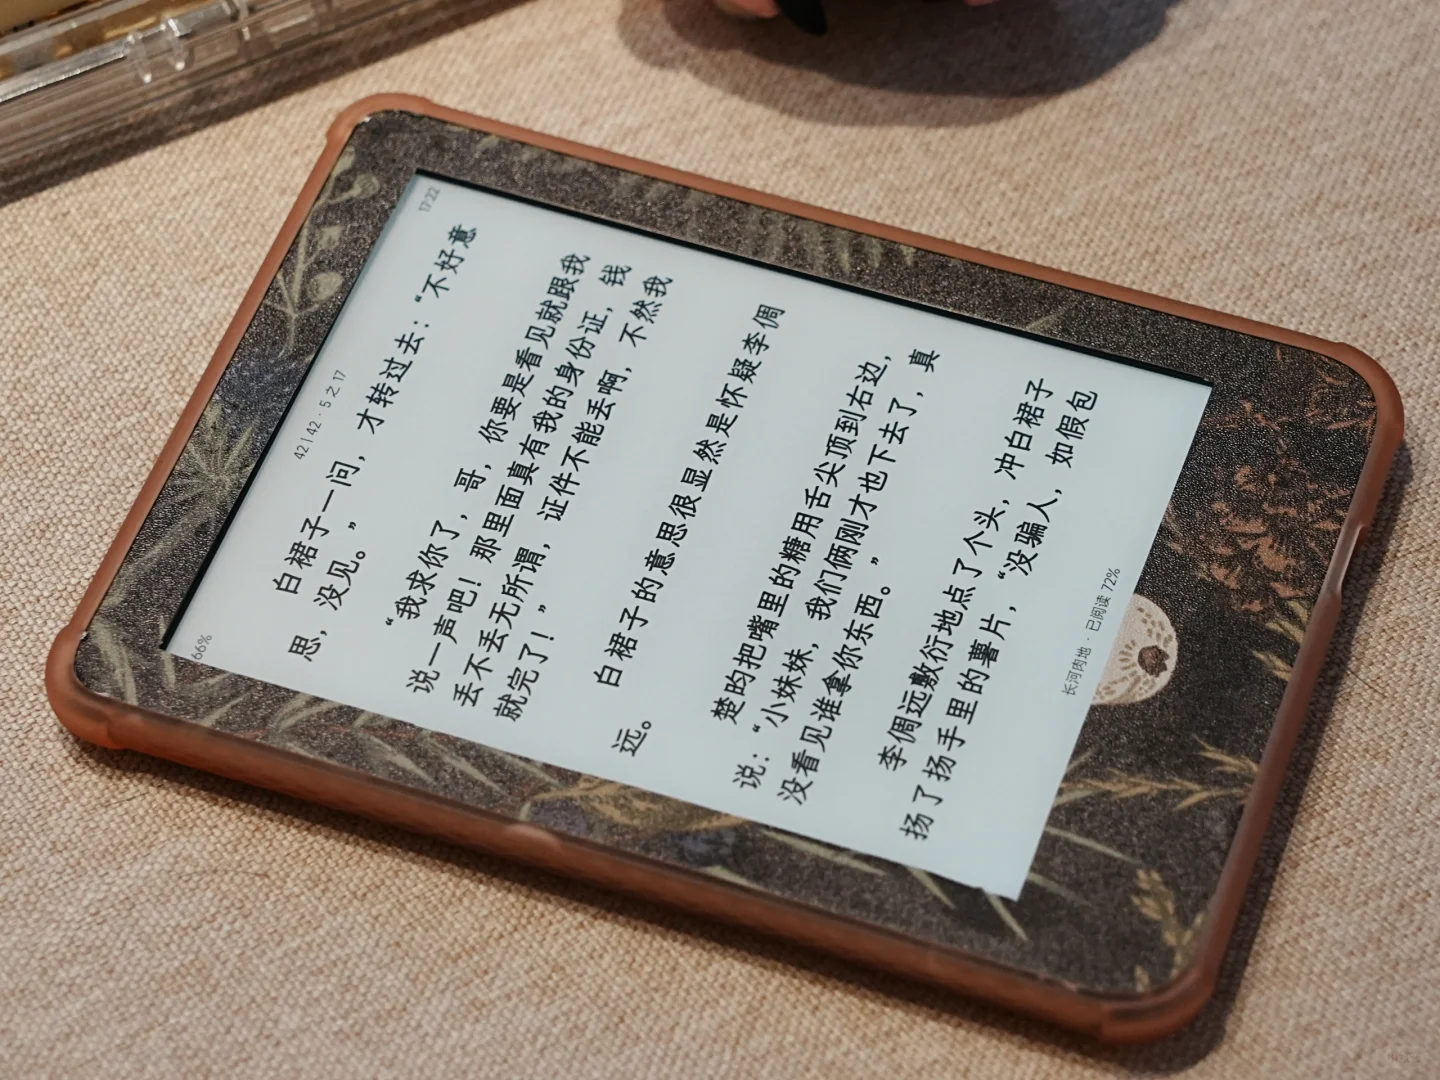 66%
42 | 42 · 5 之 17
17:22
白裙子一问，才转过去：“不好意
思，没见。”
“我求你了，哥，你要是看见就跟我
说一声吧！那里面真有我的身份证，钱
丢不丢无所谓，证件不能丢啊，不然我
就完了！”
白裙子的意思很显然是怀疑李倜
远。
楚昀把嘴里的糖用舌尖顶到右边，
说：“小妹妹，我们俩刚才也下去了，真
没看见谁拿你东西。”
李倜远敷衍地点了个头，冲白裙子
扬了扬手里的薯片，“没骗人，如假包
长河肉地 · 已阅读 72%